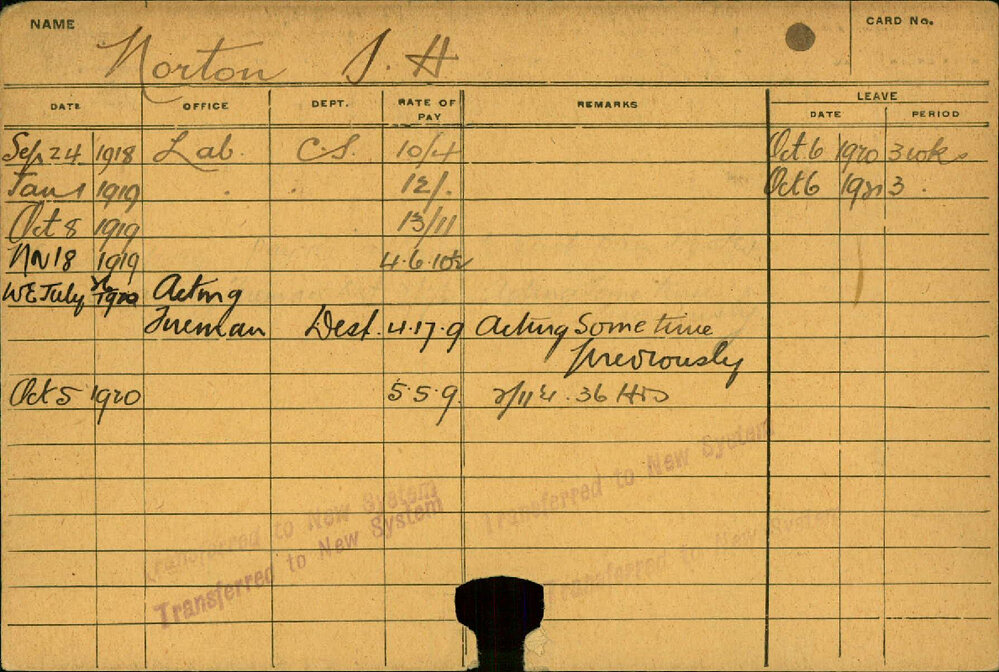 NAME
CARD No.
Norton J. H
DATE OFFICE DEPT. RATE OF PAY REMARKS LEAVE
DATE PERIOD
Sep 24 1918 Lab. C.S. 10/4 Oct 6 1920 3 wks
Jan 1 1919 . . 12/. Oct 6 1921 3 .
Oct 8 1919 13/11
Nov 18 1919 4.6.10½
WE July 1920 Acting
Fireman Dest. 4.17.9 Acting Some time
previously
Oct 5 1920 5.5.9. 36 Hrs
Transferred to New System
Transferred to New System
Transferred to New System
Transferred to New System